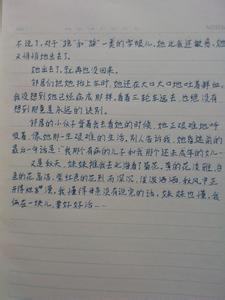 不说了。对于“跑”和“踩”一类的字眼儿，她比我还敏感。她
又悄悄地出去了。
她出去了，就再也没回来。
邻居们把她抬上车时，她还在大口大口地吐着鲜血。
我没想到她已经病成那样。看着三轮车远去，也绝没有
想到那竟是永远的诀别。
邻居的小伙子背着我去看她的时候，她正艰难地呼
吸着，像她那一生艰难的生活。别人告诉我，她昏迷前的
最后一句话是：“我那个有病的儿子和我那个还未成年的女儿…
又是秋天，妹妹推我去北海看了菊花。黄的花淡雅、白
色的花高洁、紫红色的花热烈而深沉，泼泼洒洒，秋风中正
开得烂漫。我懂得母亲没有说完的话，妹妹也懂。我
俩在一块儿，要好好活…